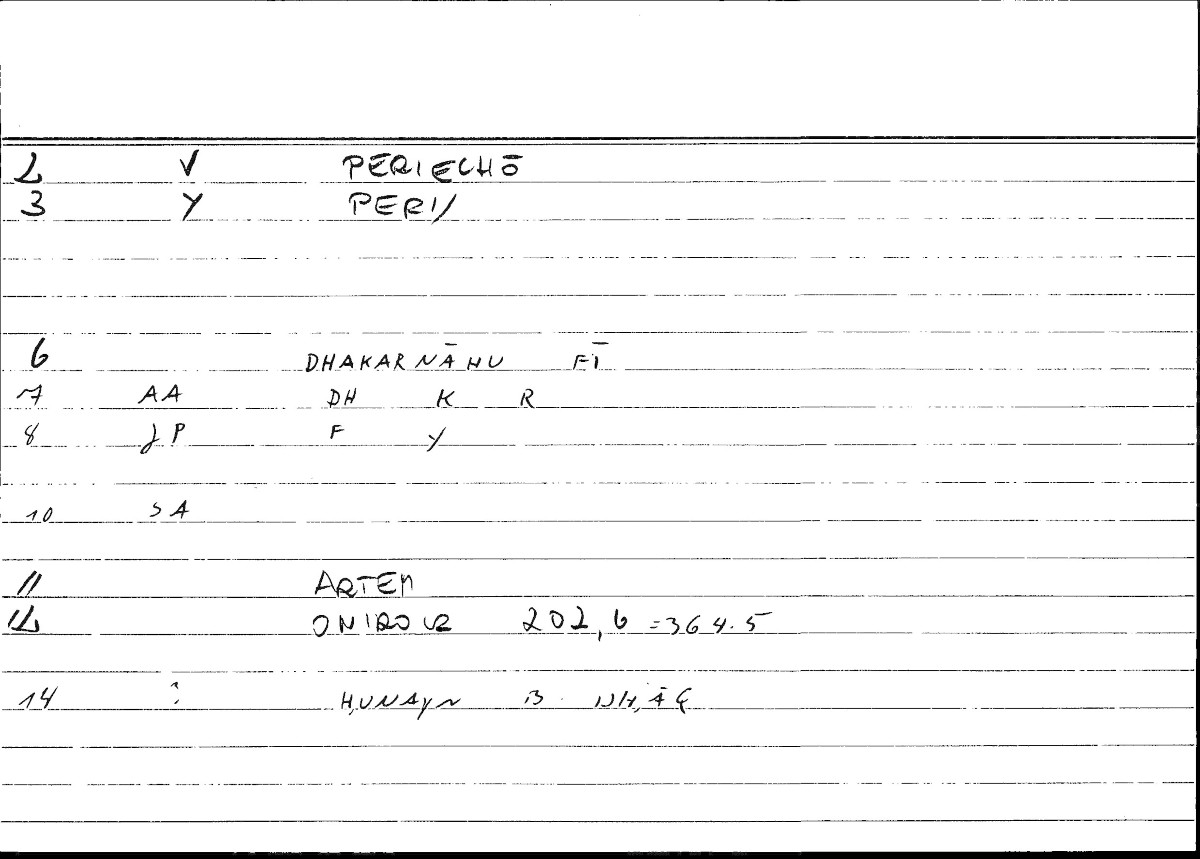 2 V PERIECHŌ
3 Y PERI/
6 DHAKARNĀHU FĪ
7 AA DH K R
8 JP F Y
10 SA
11 ARTEM
12 ONIROCR 202,6 =364.5
14 : ḤUNAYN B.